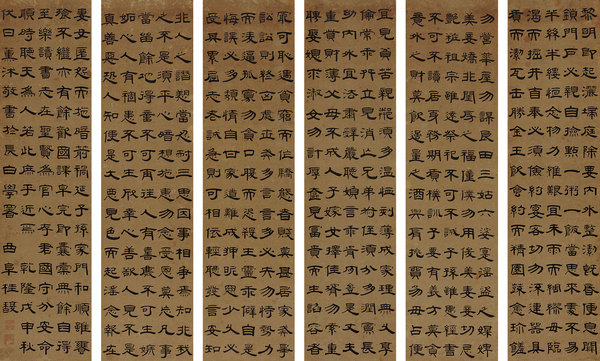 黎明即起灑掃庭除要內外整潔既昏便息關
鎖門戶必親自檢點一粥一飯當思來處不易
半絲半縷恆念物力維艱宜未雨而綢繆毋臨
渴而掘井自奉必須儉約宴客切勿流連器具
質而潔瓦缶勝金玉飲食約而精園蔬愈珍饈
勿營華屋勿謀良田三姑六婆寔淫盜之媒婢
美妾嬌非閨房之福僮僕勿用俊美妻妾切忌
艷妝祖宗雖遠祭祀不可不誠子孫雖愚經書
不可不讀居身務期質樸訓子要有義方莫貪
意外之財莫飲過量之酒與肩挑貿易毋佔便
宜見貧苦親鄰須加溫恤刻薄成家理無久享
倫常乖舛立見消亡兄弟叔侄須分多潤寡長
幼內外宜法肅辭嚴聽婦言乖骨肉豈是丈夫
重貲財薄父母不成人子嫁女擇佳婿毋索重
聘娶媳求淑女勿計厚奩見富貴而生諂容者
最可恥遇貧窮而作驕態者賤莫甚居家戒爭
訟訟則終凶處世戒多言言多必失勿恃勢力
而凌逼孤寡毋貪口腹而恣殺生禽乖僻自是
悔誤必多頹惰自甘家道難成狎昵惡少久必
受其累屈志老成急則可相依輕聽發言安知
非人之譖愬當忍耐三思因事相爭焉知非我
之不是須平心暗想施惠無念受恩莫忘凡事
當留餘地得意不宜再往人有喜慶不可生妒
忌心人有禍患不可生欣幸心善欲人見不是
真善惡恐人知便是大惡見色而起淫念報在
妻女匿怨而用暗箭禍延子孫家門和順雖饔
飧不繼亦有餘歡國課早完即囊橐無餘自得
至樂讀書志在聖賢為官心存君國守分安命
順時聽天為人若此庶乎近焉 乾隆戊申秋
日薰沐敬書於長白學署 曲阜桂馥